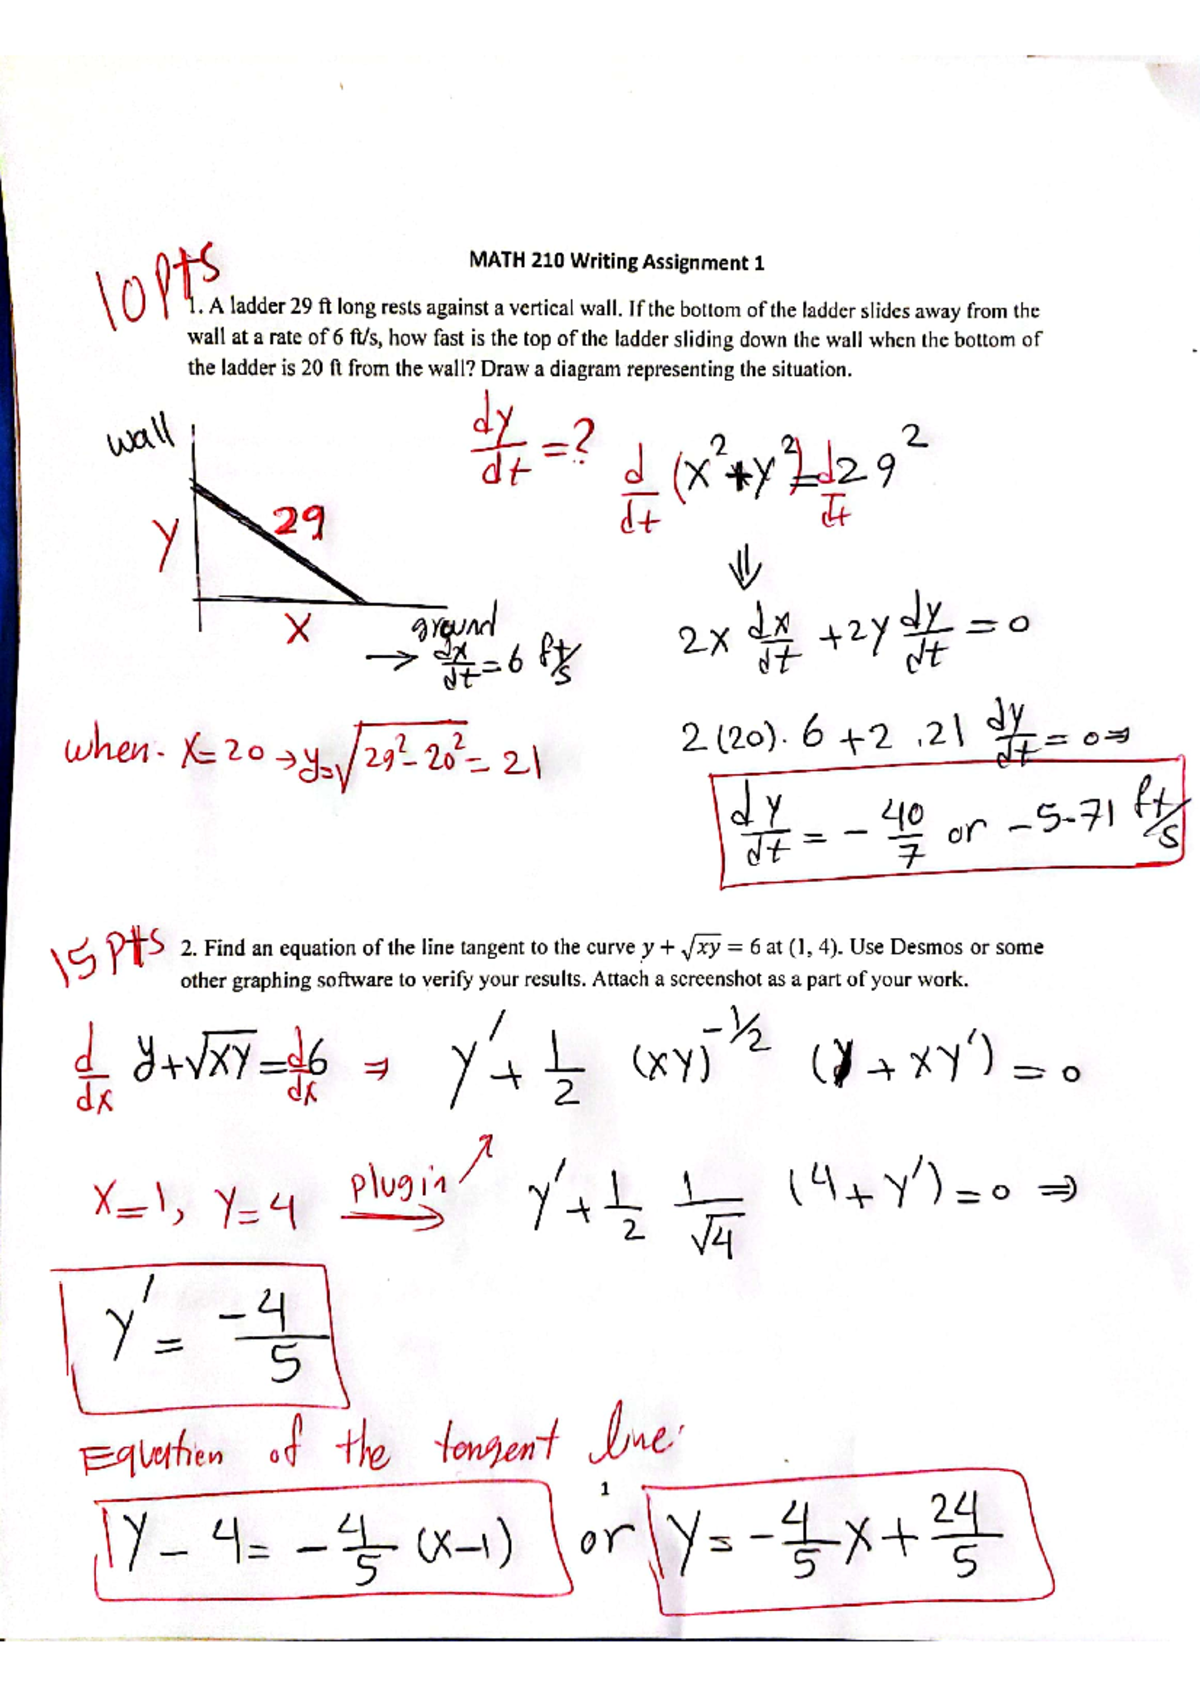 MATH 210 Writing Assignment 1
10 pts
1. A ladder 29 ft long rests against a vertical wall. If the bottom of the ladder slides away from the
wall at a rate of 6 ft/s, how fast is the top of the ladder sliding down the wall when the bottom of
the ladder is 20 ft from the wall? Draw a diagram representing the situation.
wall
dy/dt = ?
d/dt (x² + y²) = d/dt 29²
y
29
⇓
x
ground
→ dx/dt = 6 ft/s
2x dx/dt + 2y dy/dt = 0
when. x = 20 → y = √(29² - 20²) = 21
2(20). 6 + 2 . 21 dy/dt = 0 ⇒
dy/dt = - 40/7 or - 5.71 ft/s
15 pts
2. Find an equation of the line tangent to the curve y + √xy = 6 at (1, 4). Use Desmos or some
other graphing software to verify your results. Attach a screenshot as a part of your work.
d/dx y + √xy = d/dx 6 ⇒ y' + 1/2 (xy)^-1/2 (y + xy') = 0
x = 1, y = 4 plugin → y' + 1/2 1/√4 (4 + y') = 0 ⇒
y' = -4/5
Equation of the tangent line:
1
y - 4 = - 4/5 (x-1) or y = - 4/5 x + 24/5